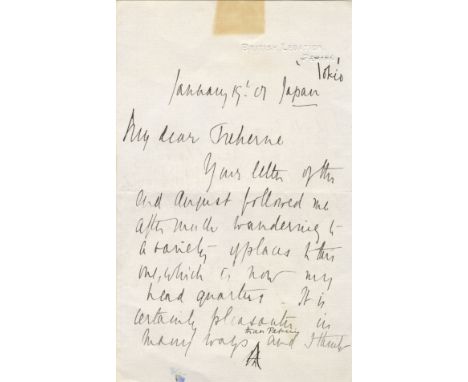 BRITISH LEGATION,
PEKING.
'Tokio
January 19' 01 Japan
My dear Treherne
Your letter of the
2nd August followed me
after much wandering to
a variety of places to this
one, which is now my
head quarters. It is
certainly pleasanter in
than Peking
many ways and I think